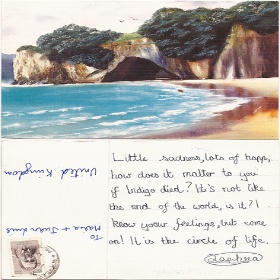 Little sadness, lots of happ,
how does it matter to you
if Indigo died? It's not like
the end of the world, is it? I
know your feelings, but come
on! It is the circle of life.
To
United Kingdom